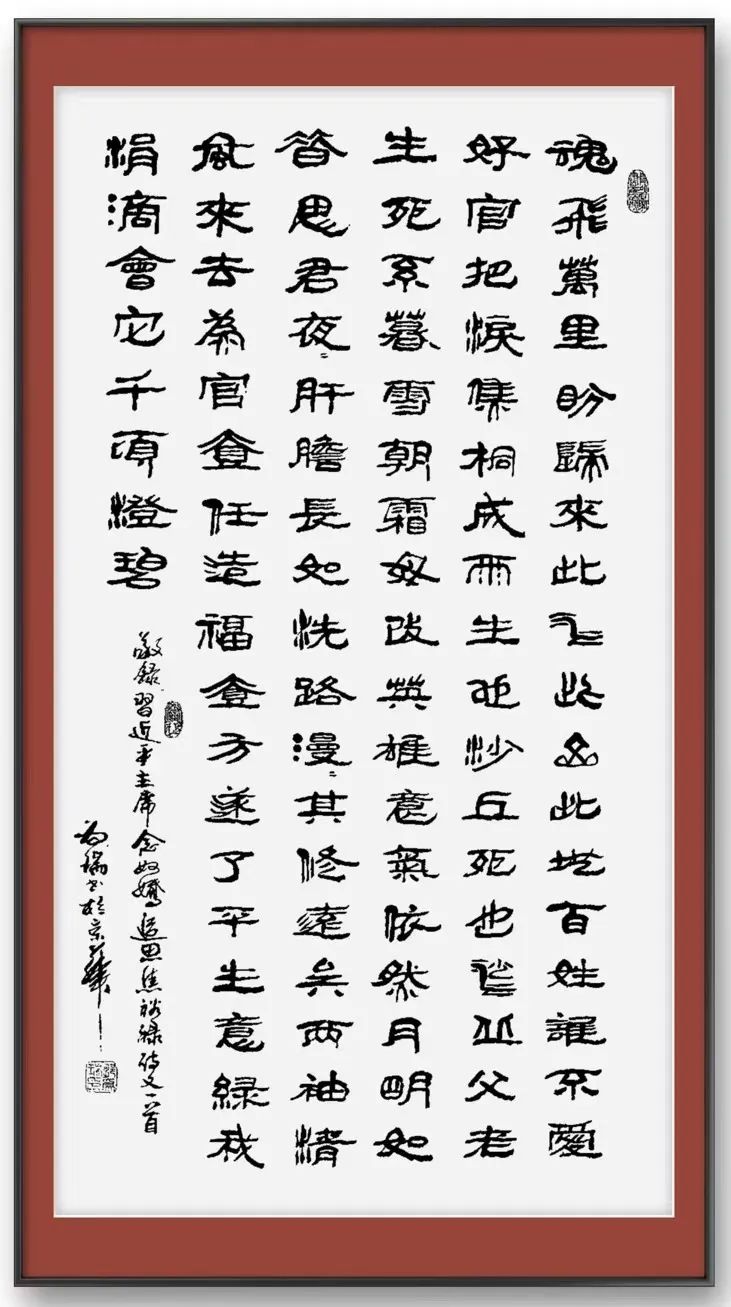 魂飛萬里盼歸來此水此山此地百姓誰不愛
好官把淚焦桐成雨生也沙丘死也沙丘父老
生死系暮雪朝霜毋改英雄意氣依然月明如
昔思君夜〻肝膽長如洗路漫〻其修遠矣兩袖清
風來去為官壹任造福壹方遂了平生意綠我
涓滴會它千頃澄碧
敬錄習近平主席念奴嬌追思焦裕祿詩文一首
瑞書於京